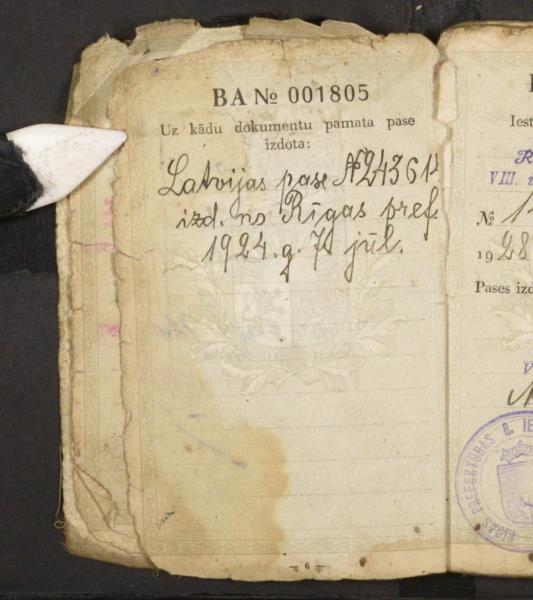 BA № 001805
Uz kādu dokumentu pamata pase
izdota:
Latvijas pase №
izd. no Rīgas pref.
1924. g. jūl.
6
Iest
VIII.
№
1928
Pases izd
RĪGAS PREFEKTŪRAS 8. IE